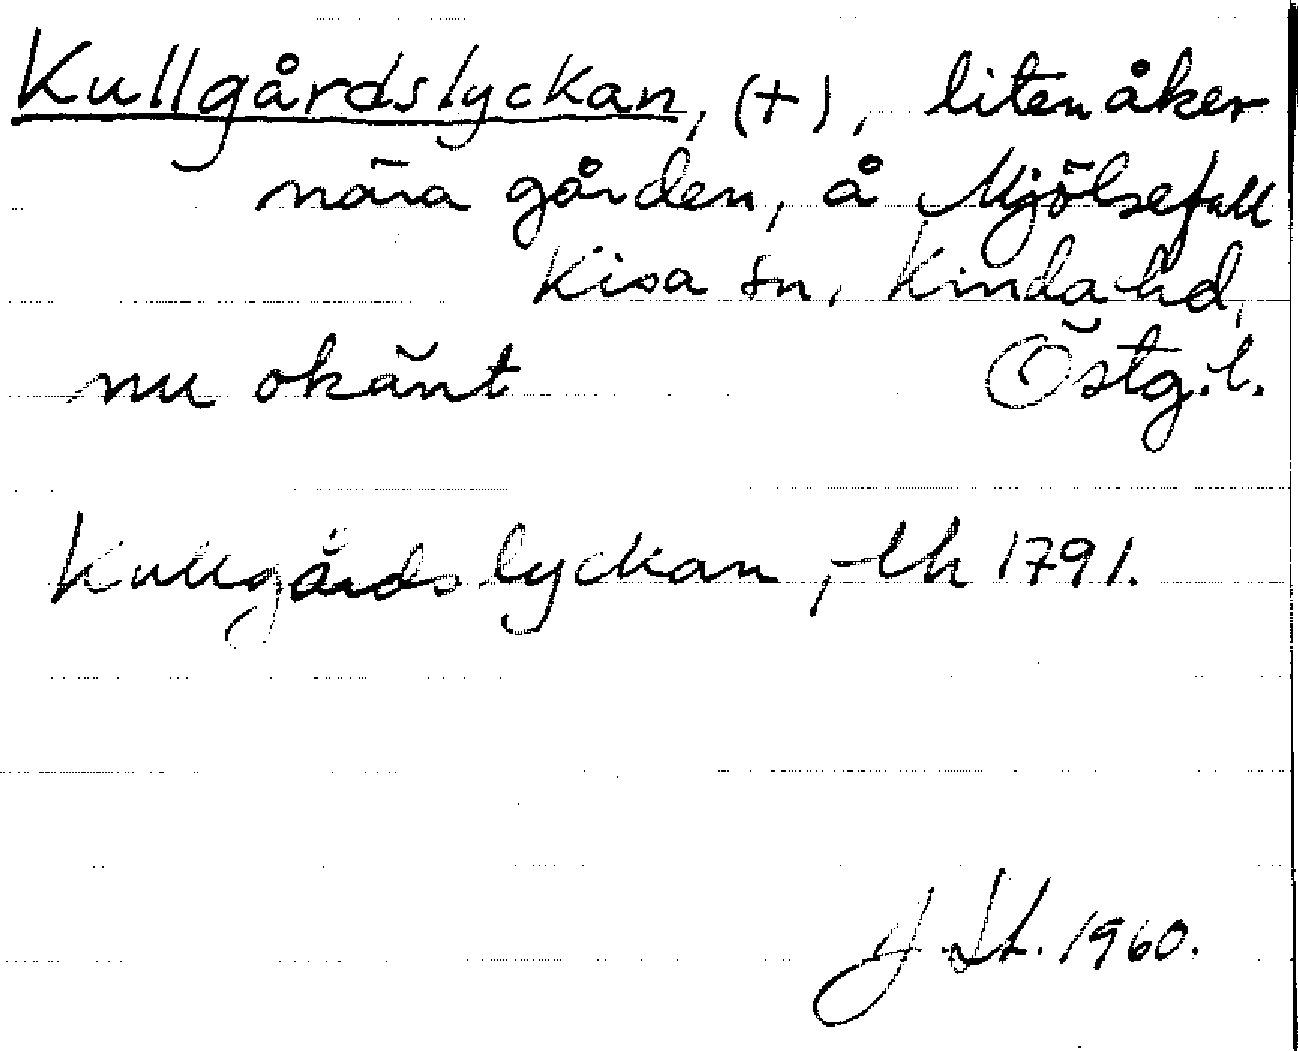 Kullgårdslyckan, (+), liten åker
nära gården, å Mjölsefall
Kisa sn, Kinda hd,
nu okänt Östg. l.
Kullgårdslyckan, lh 1791.
J. St. 1960.